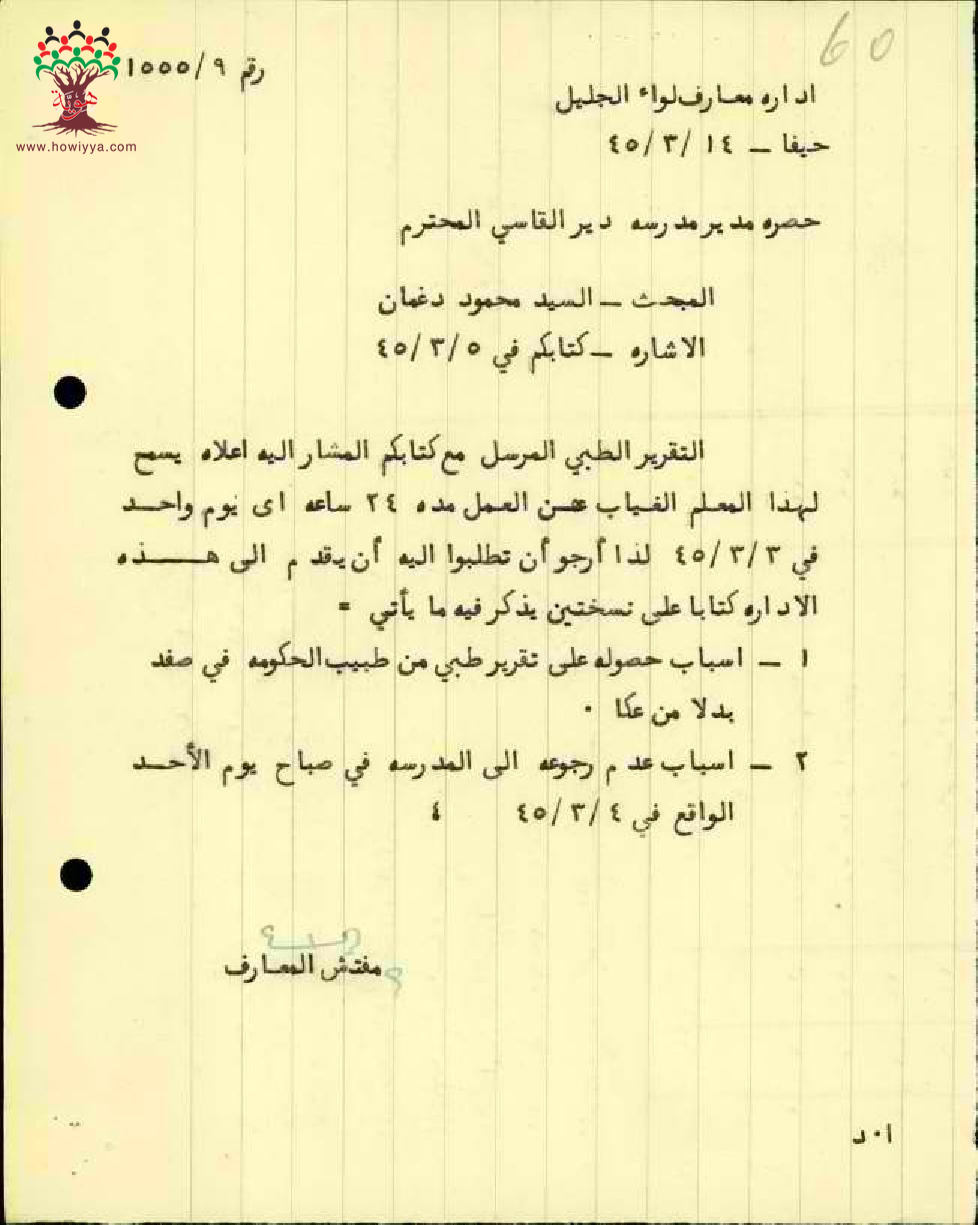 60
رقم ١٥٥٥/٩
هوية
www.howiyya.com
اداره معارف لواء الجليل
حيفا – ١٤ /٣/ ٤٥
حضره مدير مدرسه دير القاسي المحترم
المبحث – السيد محمود دغمان
الاشاره – كتابكم في ٥ /٣/ ٤٥
التقرير الطبي المرسل مع كتابكم المشار اليه اعلاه يسمح
لهذا المعلم الغياب عن العمل مده ٢٤ ساعه اى يوم واحد
في ٣/ ٣/ ٤٥ لذا أرجو أن تطلبوا اليه أن يقدم الى هذه
الاداره كتابا على نسختين يذكر فيه ما يأتي =
١ – اسباب حصوله على تقرير طبي من طبيب الحكومه في صفد
بدلا من عكا ٠
٢ – اسباب عدم رجوعه الى المدرسه في صباح يوم الأحد
الواقع في ٤ /٣/ ٤٥
مفتش المعارف
ا٠د